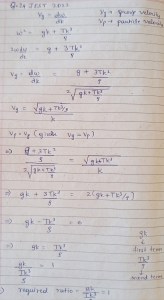 Q.24 JEST 2022
Vg = dω/dk
Vg → group velocity
Vp → particle velocity
ω² = gk + Tk³/ρ
2ω dω/dk = g + 3Tk²/ρ
Vg = dω/dk = g + 3Tk²/ρ / 2√(gk + Tk³/ρ)
Vp = √(gk + Tk³/ρ) / k
Vg = Vp (given Vg = Vp)
⇒ g + 3Tk²/ρ / 2√(gk + Tk³/ρ) = √(gk + Tk³/ρ) / k
⇒ gk + 3Tk³/ρ = 2(gk + Tk³/ρ)
⇒ gk - Tk³/ρ = 0
⇒ gk = Tk³/ρ
gk
first term
gk / Tk³/ρ = 1
Tk³/ρ
second term
required ratio = gk / Tk³/ρ = 1